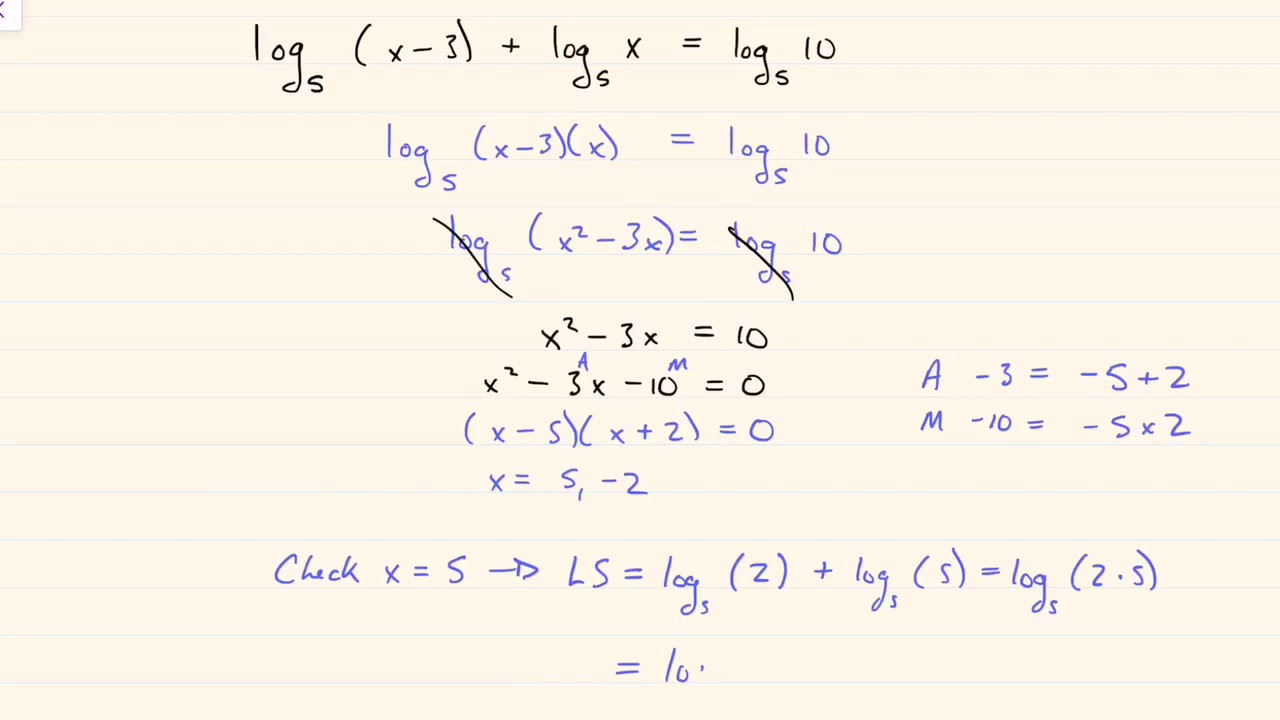 log₅ (x − 3) + log₅ x = log₅ 10
log₅ (x − 3)(x) = log₅ 10
log₅ (x² − 3x) = log₅ 10
x² − 3x = 10
A M
x² − 3x − 10 = 0 A −3 = −5 + 2
(x − 5)(x + 2) = 0 M −10 = −5 × 2
x = 5, −2
Check x = 5 → LS = log₅ (2) + log₅ (5) = log₅ (2 · 5)
= lo